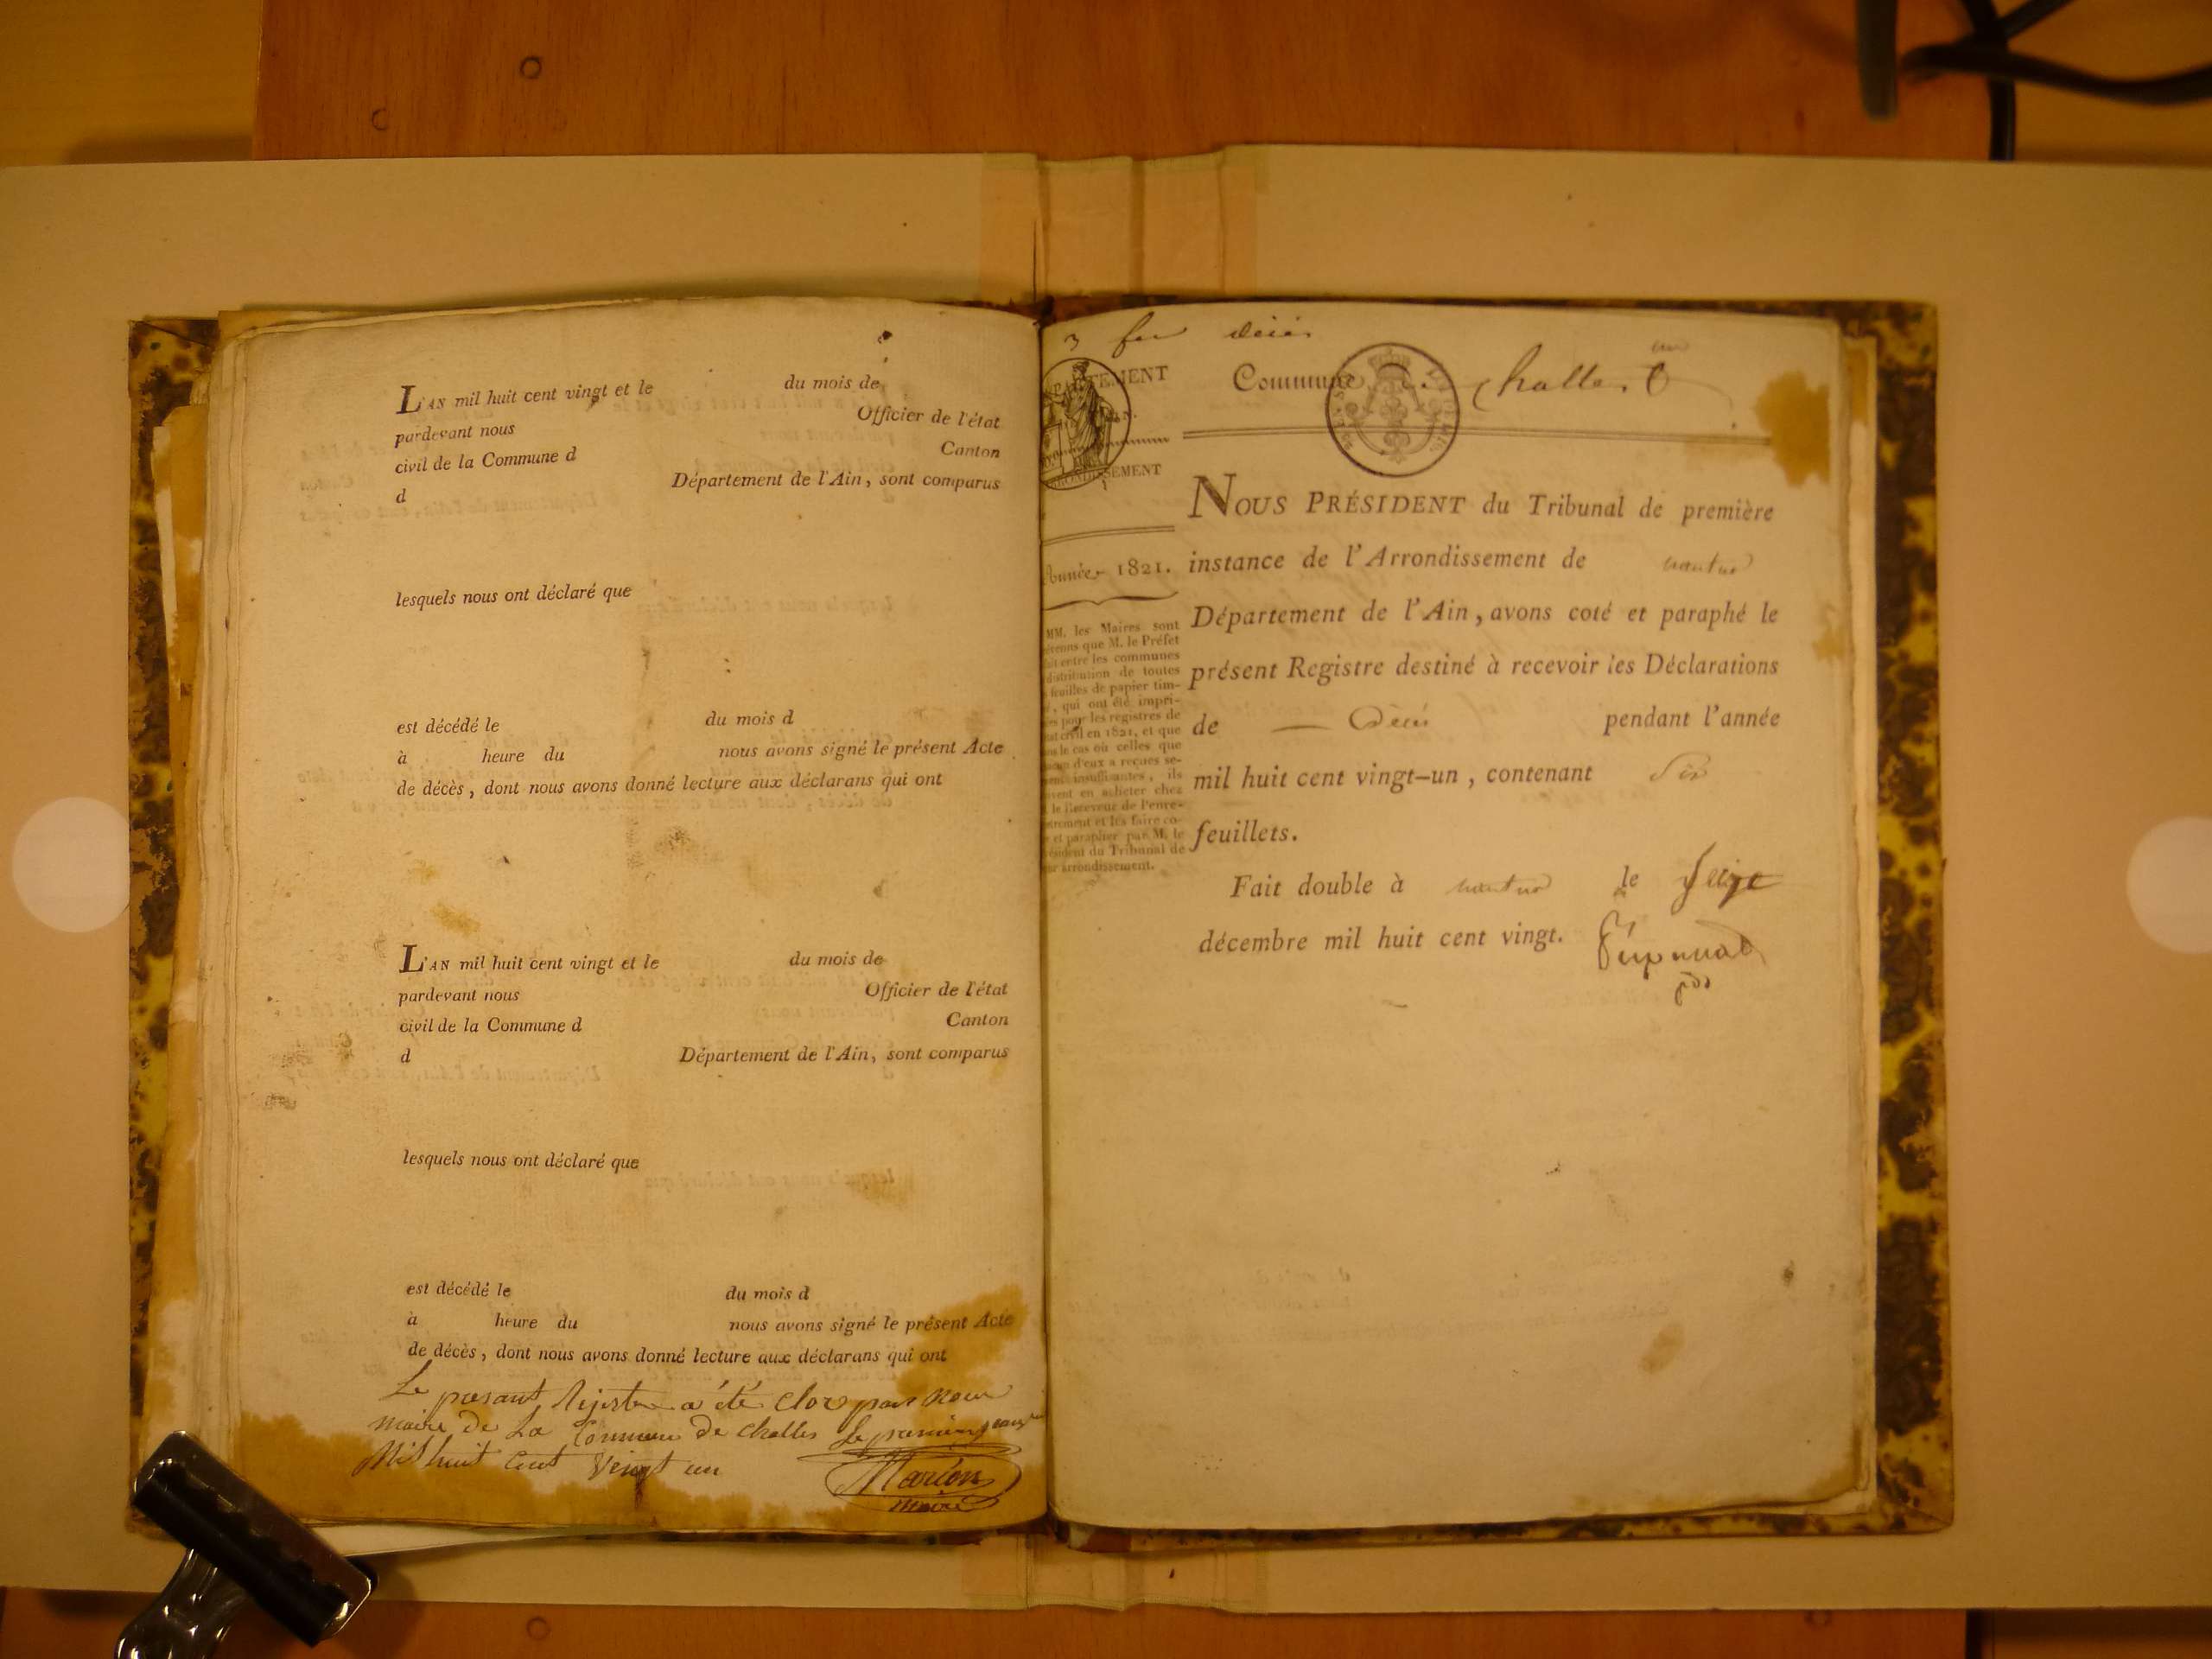 L'AN mil huit cent vingt et le du mois de
pardevant nous Officier de l'état
civil de la Commune d Canton
d Département de l'Ain, sont comparus
lesquels nous ont déclaré que
est décédé le du mois d
à heure du nous avons signé le présent Acte
de décès, dont nous avons donné lecture aux déclarans qui ont
L'AN mil huit cent vingt et le du mois de
pardevant nous Officier de l'état
civil de la Commune d Canton
d Département de l'Ain, sont comparus
lesquels nous ont déclaré que
est décédé le du mois d
à heure du nous avons signé le présent Acte
de décès, dont nous avons donné lecture aux déclarans qui ont
Le presant Rejistre a été clos par nous
maire de La Commune de challes Le premier
Mil huit Cent Vingt un
Marion
maire
3 décès
PARTEMENT
Commune challes
RONDISSEMENT
Année 1821.
MM. les Maires sont
que M. le Préfet
fait entre les communes
distribution de toutes
feuilles de papier tim-
qui ont été impri-
pour les registres de
civil en 1821, et que
le cas où celles que
d'eux a reçues se-
insuffisantes, ils
en acheter chez
le Receveur de l'enre-
et les faire co-
et parapher par M. le
du Tribunal de
arrondissement.
NOUS PRÉSIDENT du Tribunal de première
instance de l'Arrondissement de nantua
Département de l'Ain, avons coté et paraphé le
présent Registre destiné à recevoir les Déclarations
de Décès pendant l'année
mil huit cent vingt-un, contenant Six
feuillets.
Fait double à nantua le Seize
décembre mil huit cent vingt.